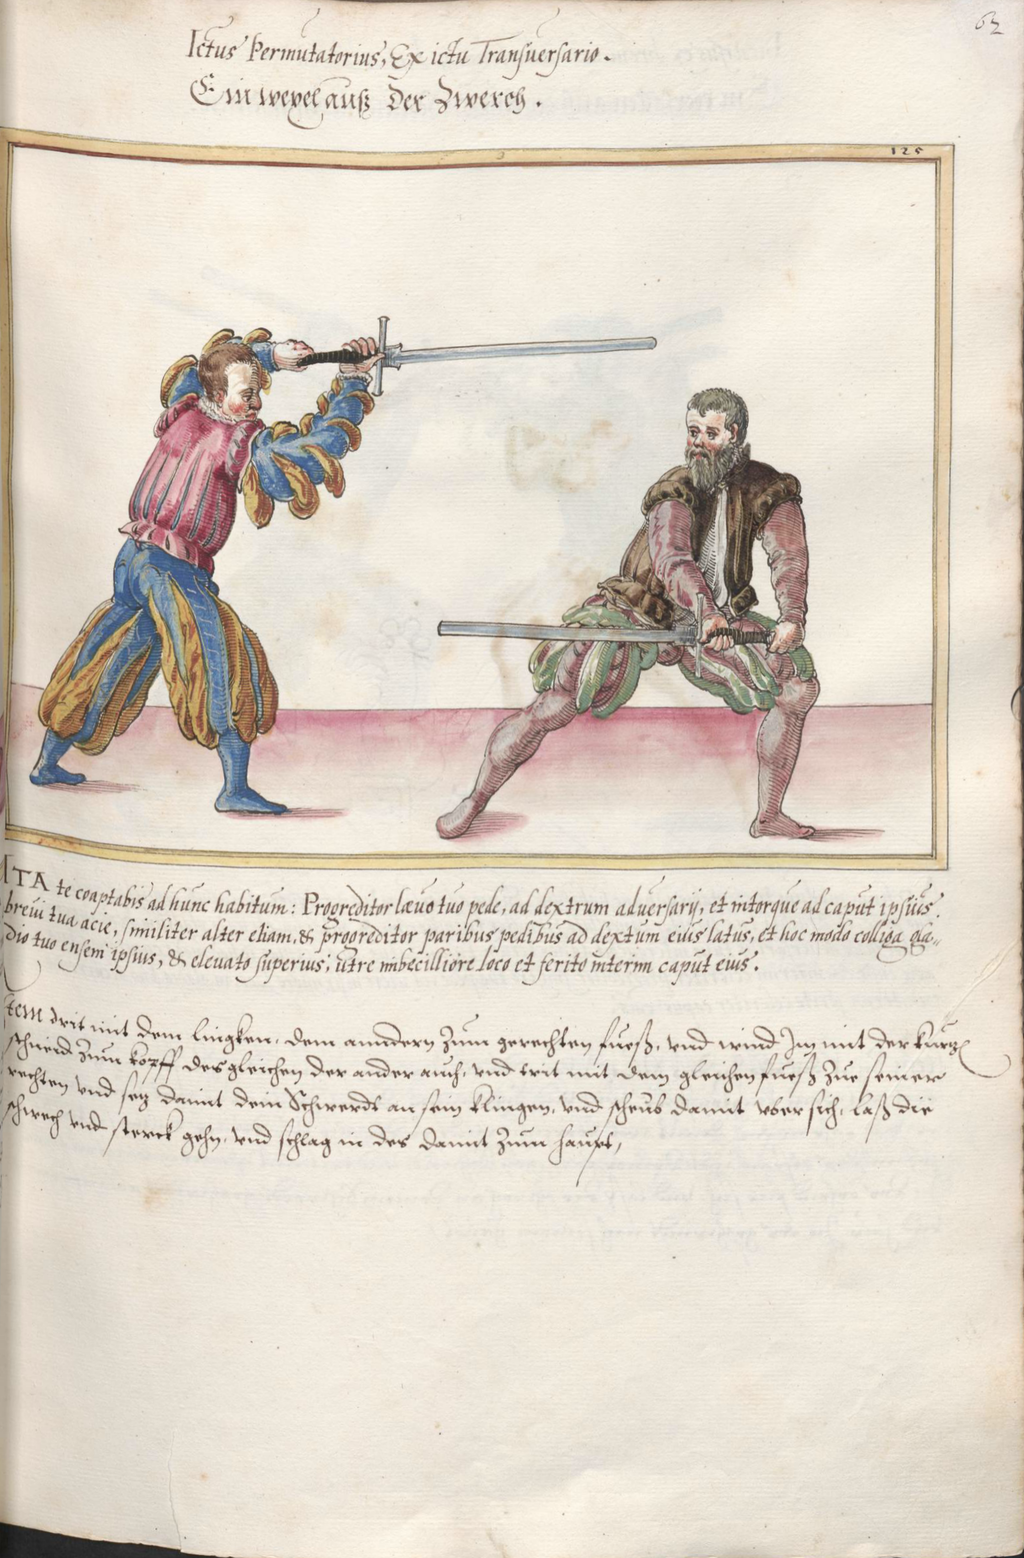 63
Ictus Permutatorius, Ex ictu Transuersario.
Ein wexel auß der Zwerch.
125
ITA te coaptabis ad hunc habitum: Progreditor lævo tuo pede, ad dextrum adversarij, et intorque ad caput ipsius.
brevi tua acie, similiter alter etiam, & progreditor paribus pedibus ad dextum eius latus, et hoc modo colliga gla-
dio tuo ensem ipsius, & elevato superius, utre imbecilliore loco et ferito interim caput eius.
Item drit mit dem lingken, dem anndern zum gerechten fueß, vnd wind Im mit der kurtz
schneid zum kopff desgleichen der ander auch, vnd trit mit dem gleichen fueß zue seiner
rechten vnd setz damit dein Schwerdt an sein klingen, vnd scheub damit vber sich, laß die
schwech vnd sterck gehn, vnd schlag in des damit zum haupt,